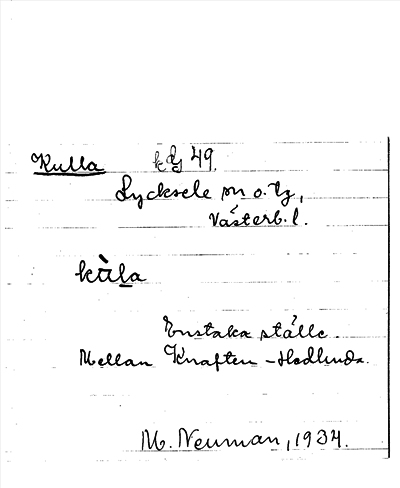 Kulla kg 49.
Lycksele sn o. tg,
Västerb. l.
kùla
Enstaka ställe.
Mellan Knaften - Hedlunda.
M. Neuman, 1934.